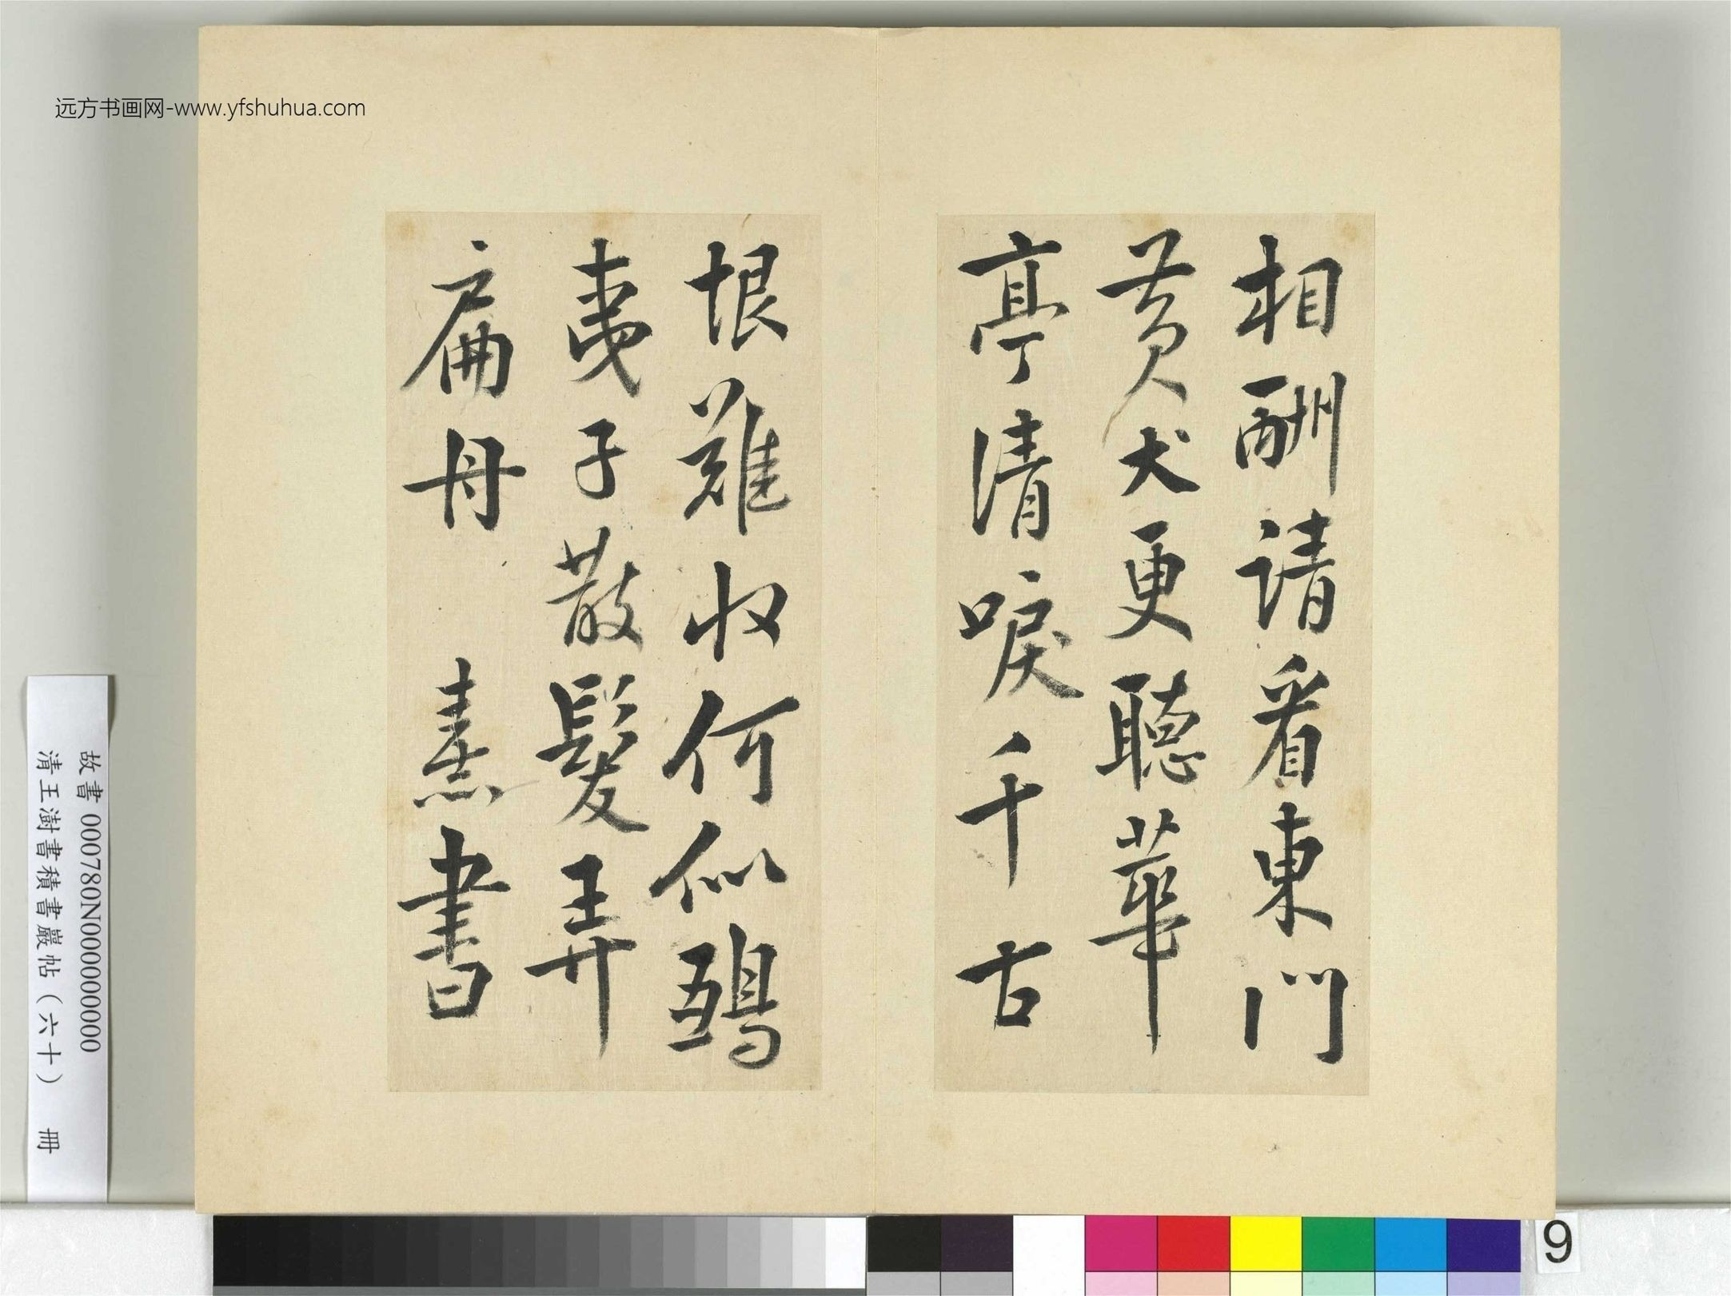 远方书画网-www.yfshuhua.com
相酬請看東門
黃犬更聽華
亭清唳千古
恨難收何似鴟
夷子散髮弄
扁舟 熹書
故書 000780N000000000
清王澍書積書巖帖(六十) 冊
9